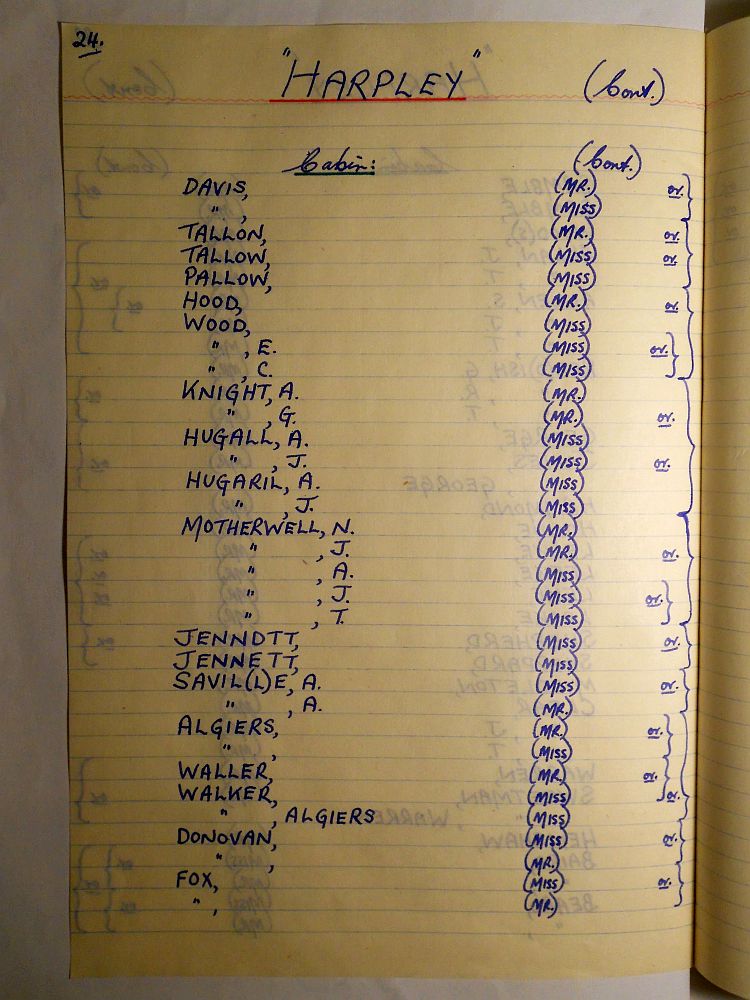 24.
"HARPLEY" (Cont.)
Cabin: (Cont.)
DAVIS, (MR.) or.
" , (MISS)
TALLON, (MR.) or.
TALLOW, (MISS) or.
PALLOW, (MISS)
HOOD, (MR.) or.
WOOD, (MISS)
" , E. (MISS) or.
" , C. (MISS)
KNIGHT, A. (MR.)
" , G. (MR.) or.
HUGALL, A. (MISS)
" , J. (MISS) or.
HUGARIL, A. (MISS)
" , J. (MISS)
MOTHERWELL, N. (MR.)
" , J. (MR.) or.
" , A. (MISS)
" , J. (MISS) or.
" , T. (MISS)
JENNOTT, (MISS) or.
JENNETT, (MISS)
SAVIL(L)E, A. (MISS) or.
" , A. (MR.)
ALGIERS, (MR.) or.
" , (MISS)
WALLER, (MR.) or.
WALKER, (MISS) or.
" , ALGIERS (MISS)
DONOVAN, (MISS) or.
" , (MR.)
FOX, (MISS) or.
" , (MR.)